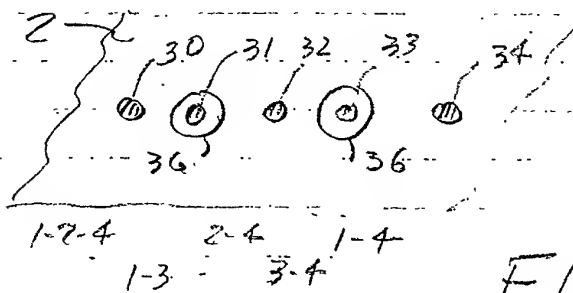 2
30 31 32 33 34
36 36
1-2-4 2-4 1-4
1-3 3-4
FI